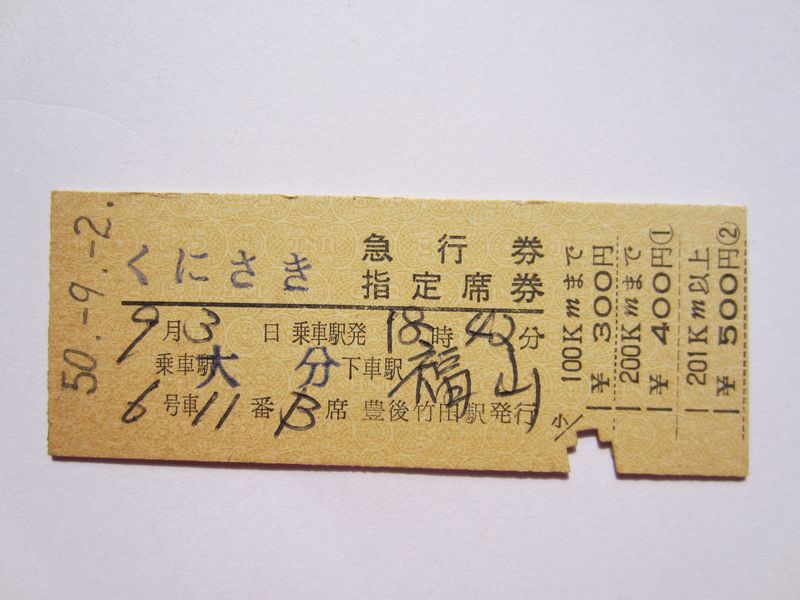 50.-9.-2.
くにさき
急行券
指定席券
9月3日 乗車駅発 18時42分
乗車駅 大分 下車駅 福山
6号車 11番B席 豊後竹田駅発行
100Kmまで ¥300円
200Kmまで ¥400円①
201Km以上 ¥500円②